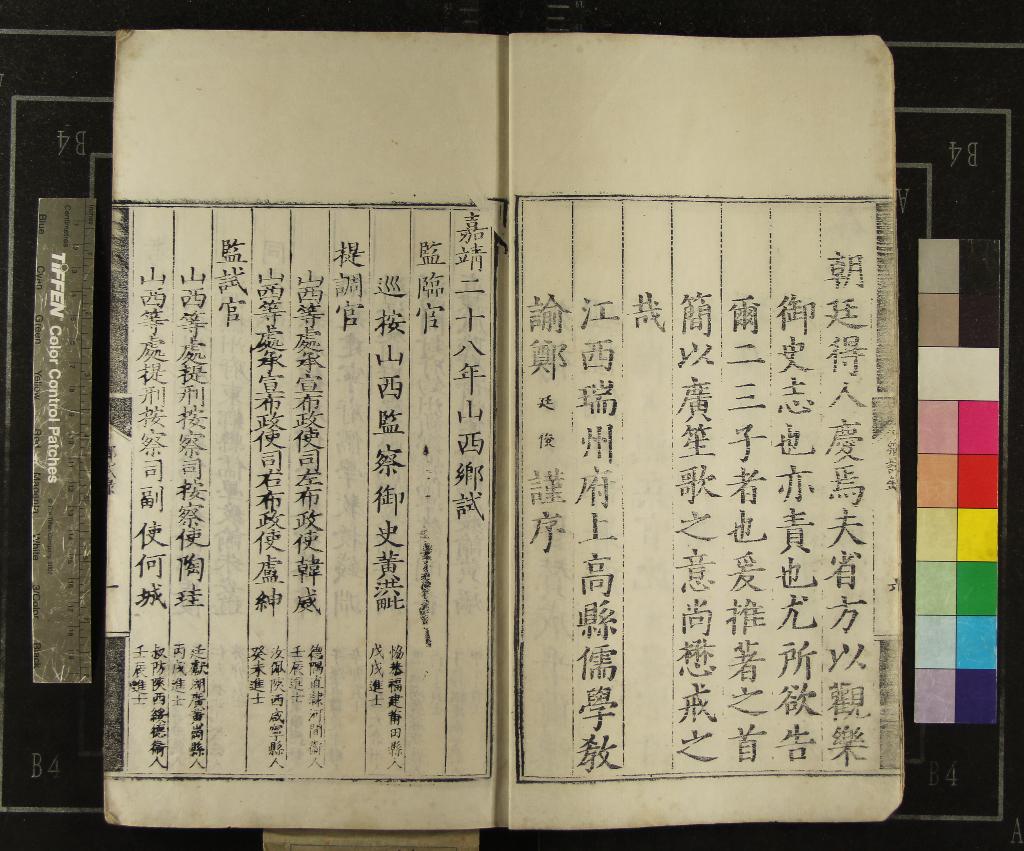 朝廷得人慶焉夫省方以觀樂
御史志也亦責也尤所欲告
爾二三子者也爰推著之首
簡以廣笙歌之意尚懋戒之
哉
江西瑞州府上高縣儒學教
諭鄭廷俊謹序
嘉靖二十八年山西鄉試
監臨官
巡按山西監察御史黃洪毗
懋基福建莆田縣人
戊戌進士
提調官
山西等處承宣布政使司左布政使韓威
德陽直隸河間衞人
壬辰進士
山西等處承宣布政使司右布政使盧紳
汝佩陝西咸寧縣人
癸未進士
監試官
山西等處提刑按察司按察使陶珪
廷獻湖廣黃岡縣人
丙戌進士
山西等處提刑按察司副使何城
叔防陝西綏德衞人
壬辰進士
TIFFEN Color Control Patches
Blue
Cyan
Green
Yellow
Red
Magenta
White
3/Color
Black
Centimetres
Inches
B4
B4
B4
B4
A
A